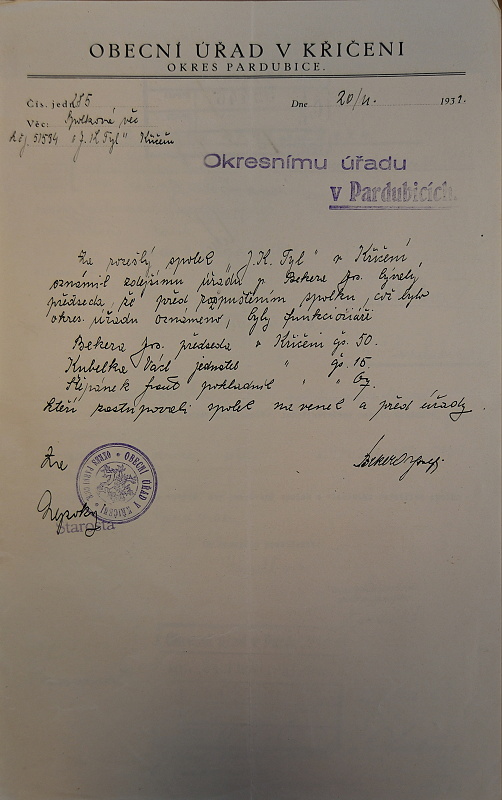 OBECNÍ ÚŘAD V KŘIČENI
OKRES PARDUBICE.
Čís. jedn. 285
Dne 20/11. 1931.
Věc: Spolková věc
k čj. 51594 „J. K. Tyl" Křičeň
Okresnímu úřadu
v Pardubicích.
Za zrušlý spolek „J. K. Tyl" v Křičeni
oznámil zdejšímu úřadu p. Bekera Jos. bývalý
předseda, že před rozpuštěním spolku, což bylo
okres. úřadu oznámeno, byly funkcionáři
Bekera Jos. předseda v Křičeni čp. 50.
Kubelka Václ. jednatel " čp. 15.
Štěpánek Frant. pokladník " "
kteří zastupovali spolek na venek a před úřady.
Za
OBECNÍ ÚŘAD V KŘIČENI
OKRES PARDUBICE
starosta